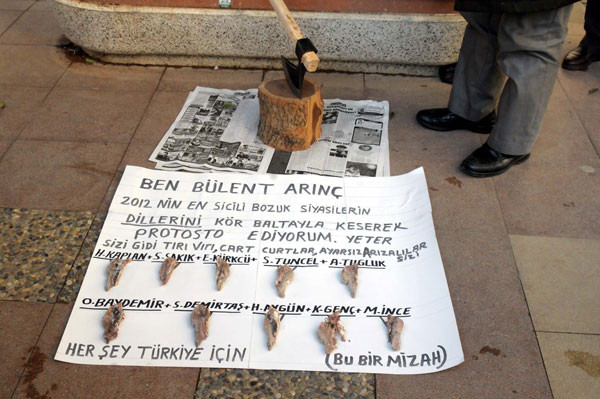 BEN BÜLENT ARINÇ
2012 NİN EN SİCİLİ BOZUK SİYASİLERİN
DİLLERİNİ KÖR BALTAYLA KESEREK
PROTOSTO EDİYORUM. YETER
SİZİ GİDİ TIRI VIRI, CART CURTLAR, AYARSIZ ARIZALILAR SİZİ
H. KAPLAN + S. SAKIK + E. KÜRKCÜ + S. TUNCEL + A. TUĞLUK
O. BAYDEMİR + S. DEMİRTAŞ + H. AYGÜN + K. GENÇ + M. İNCE
HER ŞEY TÜRKİYE İÇİN (BU BİR MİZAH)